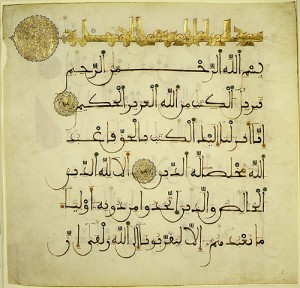 بسم الله الرحمن الرحيم
تنزيل الكتب من الله العزيز الحكيم
انا انزلنا اليك الكتب بالحق فاعبد
الله مخلصا له الدين الا لله الدين
الخالص والذين اتخذوا من دونه اوليا
ما نعبدهم الا ليقربونا الى الله زلفى ان